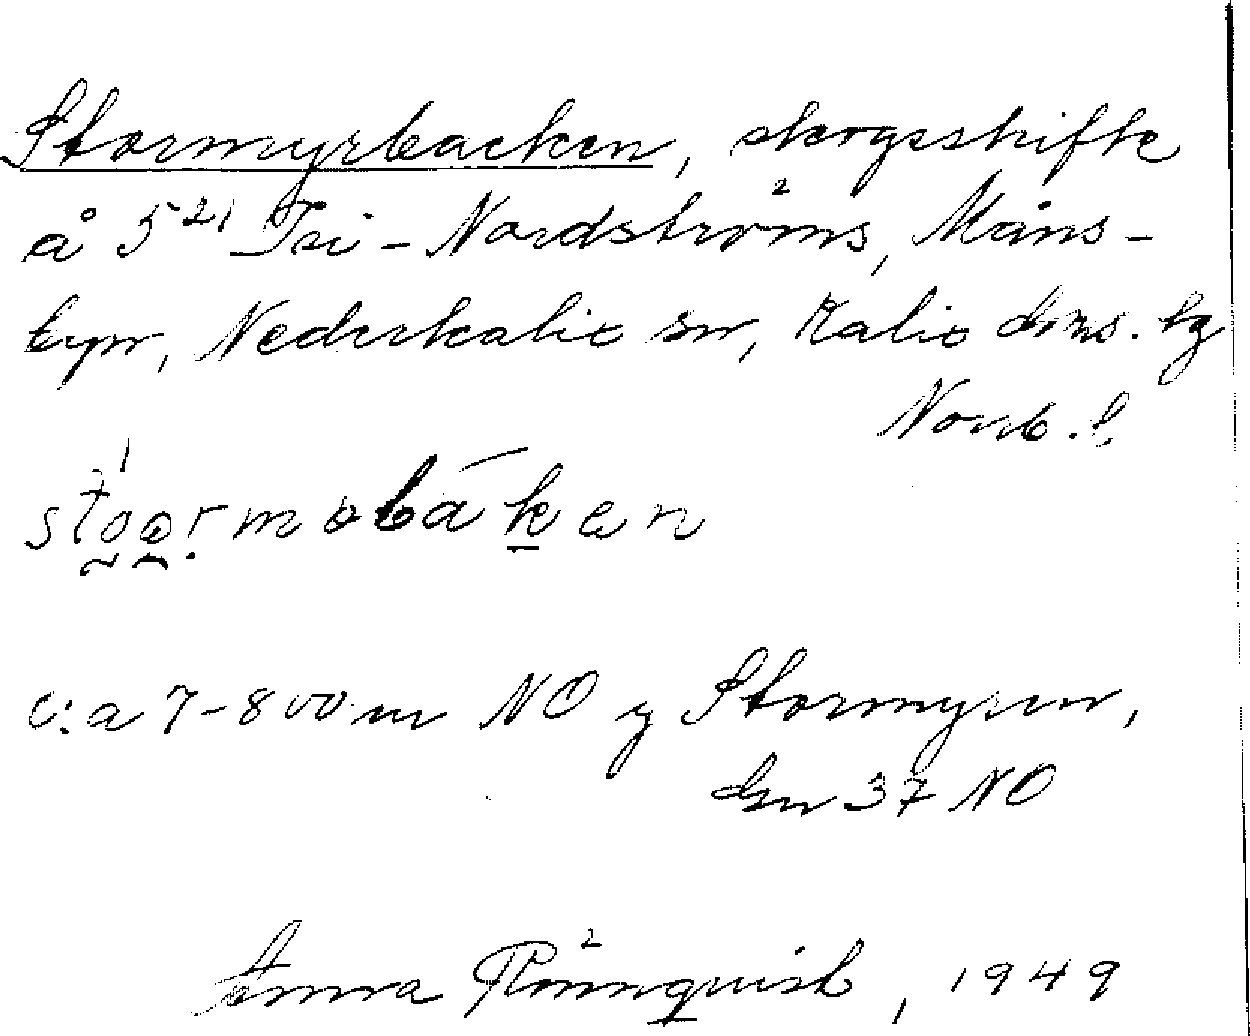 Stormyrbacken, skogsskifte
å 5²¹ Tri-Nordströms, Måns-
byn, Nederkalix sn, Kalix dms. tg
Norrb. l.
c:a 7-800 m NO y Stormyren,
Gn 37 NO
Anna Rönnquist, 1949